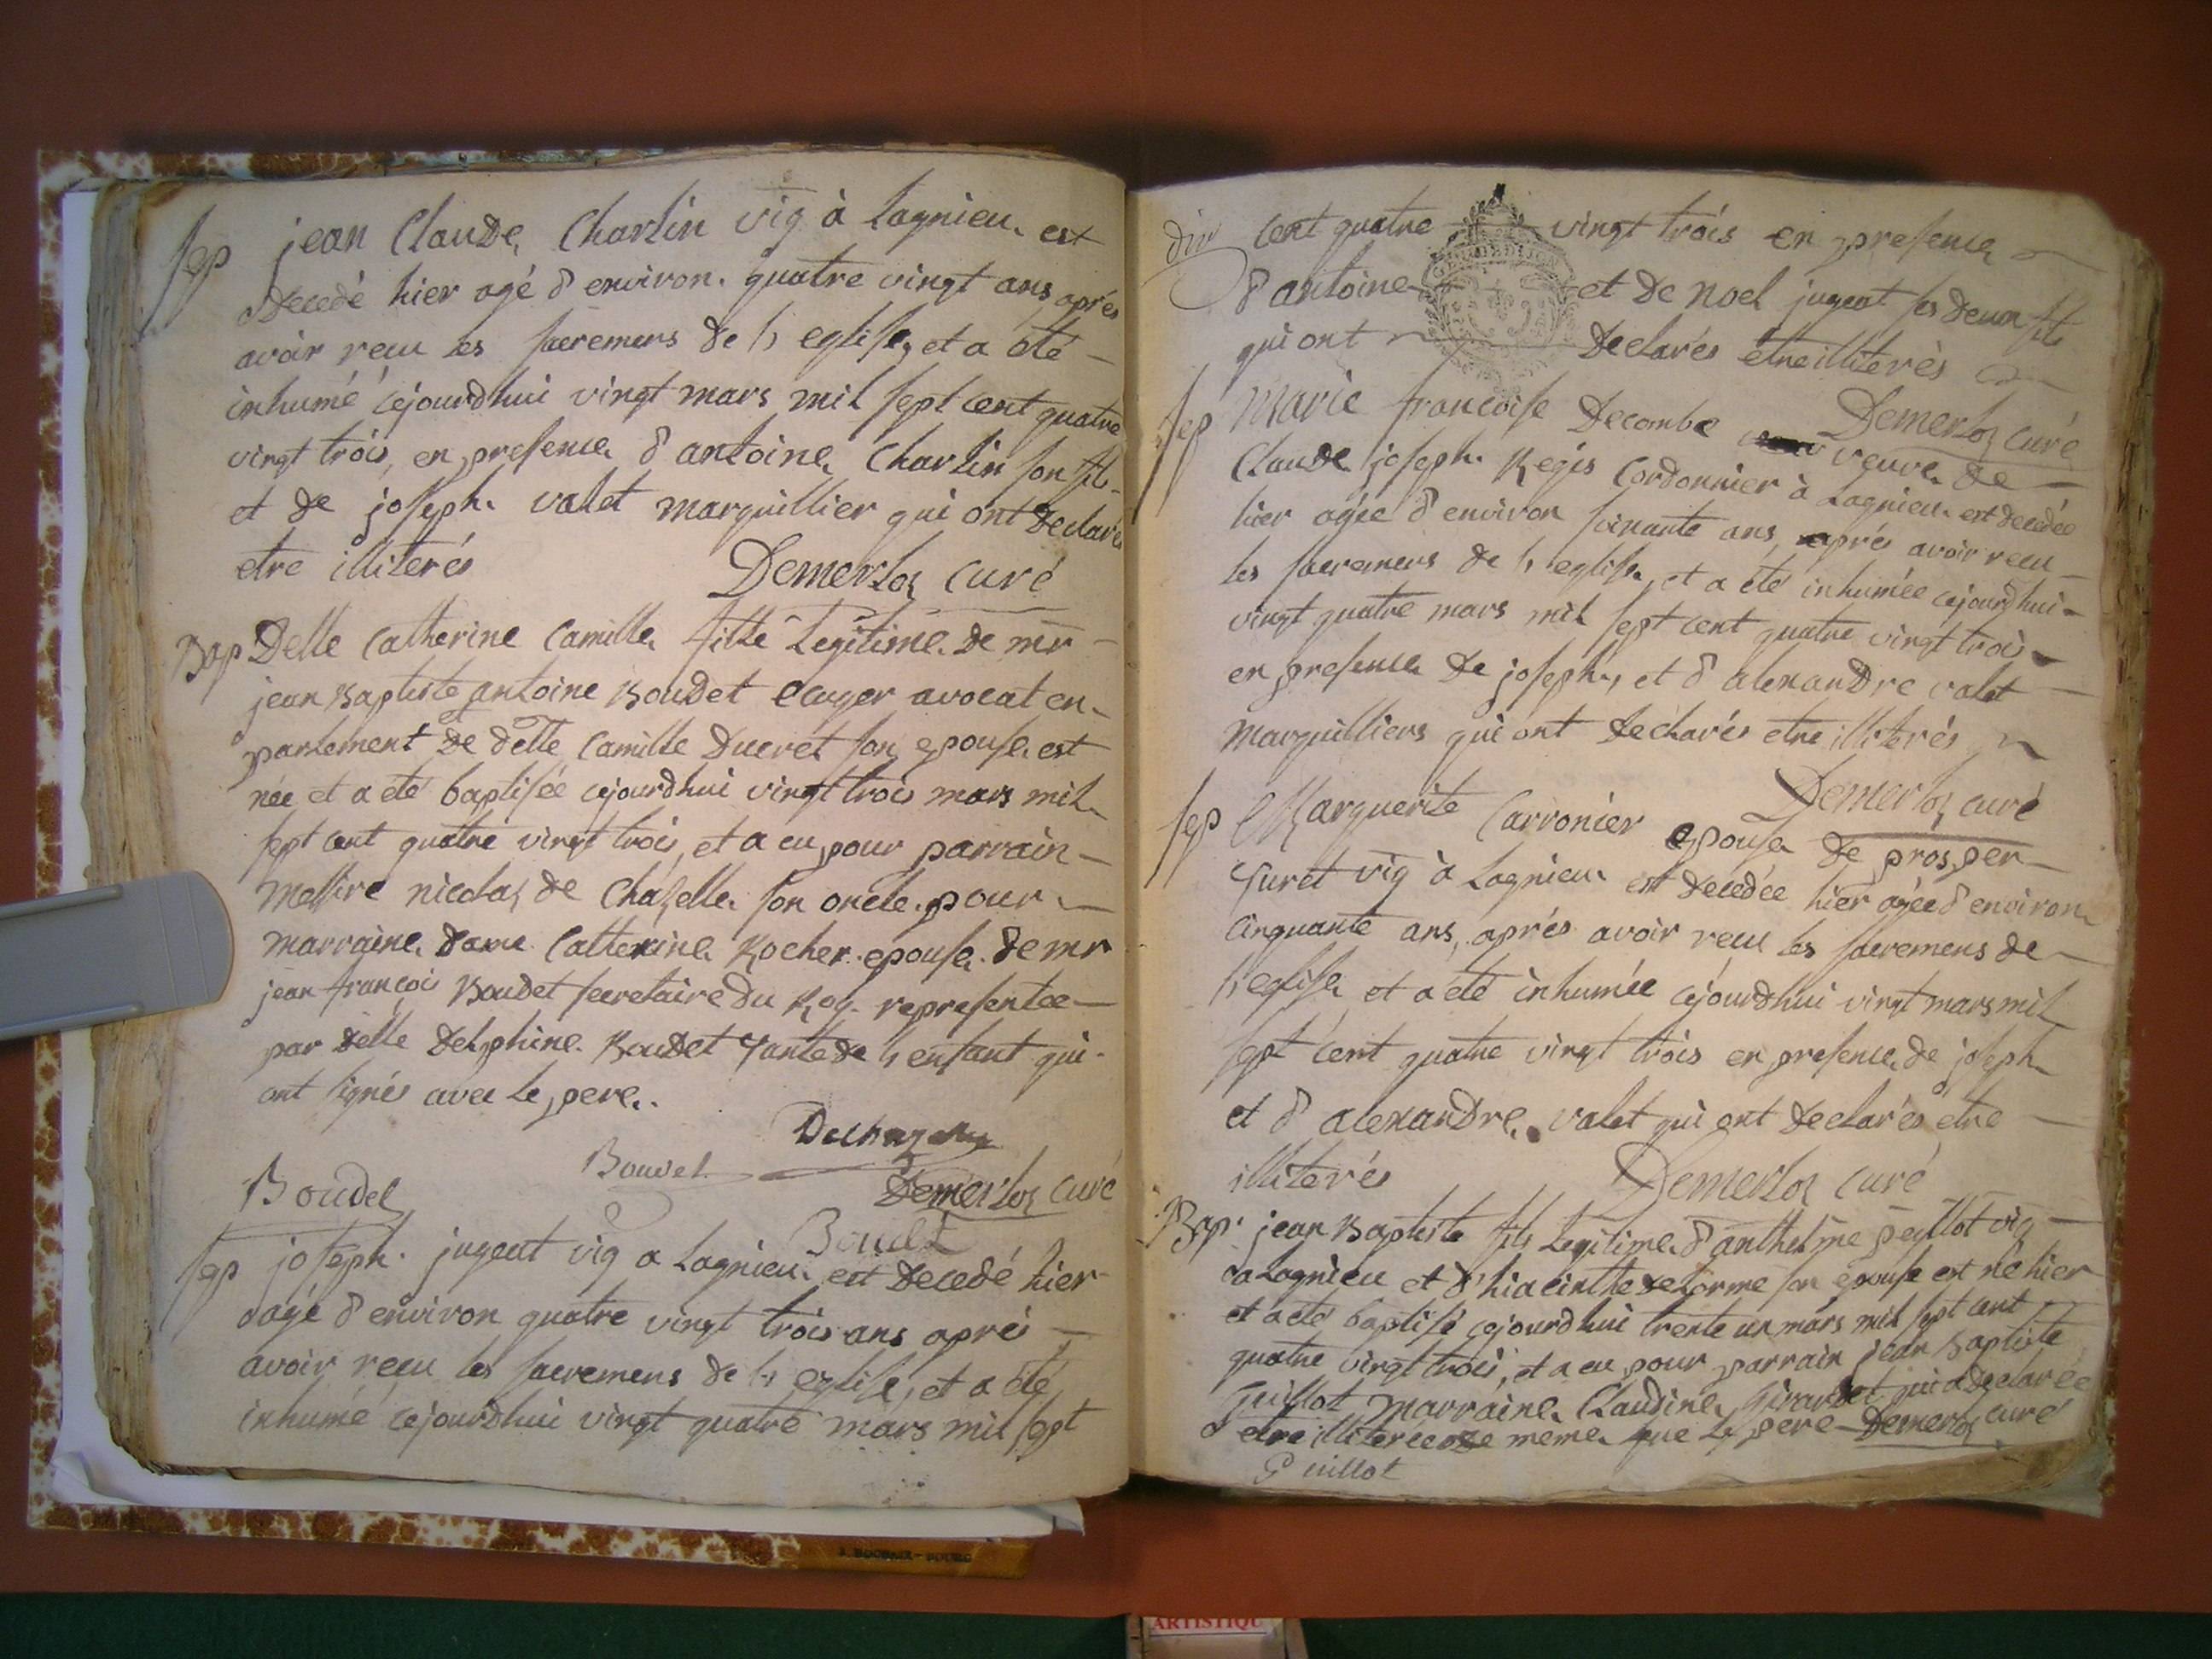 Sep jean Claude Charlin vig à Lagnieu est
decedé hier agé d environ quatre vingt ans après
avoir recu les sacremens de l'eglise, et a été
inhumé cejourdhui vingt mars mil sept cent quatre
vingt trois, en presence d antoine Charlin son fils
et de joseph valet marguillier qui ont declarés
etre illiterés Demerloz curé
Bap Delle Catherine Camille fille Legitime de mr
jean Baptiste antoine Boudet ecuyer avocat en
parlement et de delle Camille Ducret son epouse est
née et a été baptisée cejourdhui vingt trois mars mil
sept cent quatre vingt trois, et a eu pour parrain
messire nicolas de Chazelle son oncle pour
marraine dame Catherine Rocher epouse de mr
jean françois Boudet secretaire du Roy representee
par delle Delphine Boudet Tante de l'enfant qui
ont signés avec le pere.
Boudet Dechazelle
Boudet Demerloz curé
Boudet
Sep joseph jugeat vig a Lagnieu est decedé hier
agé d environ quatre vingt trois ans après
avoir recu les sacremens de l'eglise, et a été
inhumé cejourdhui vingt quatre mars mil sept
cent quatre vingt trois en presence
d antoine et de noel jugeat ses deux fils
qui ont declarés etre illiterés
Demerloz curé
Sep Marie francoise Decombe veuve de
Claude joseph Regis Cordonnier à Lagnieu est decedée
hier agée d environ soixante ans, après avoir recu
les sacremens de l'eglise, et a été inhumée cejourdhui
vingt quatre mars mil sept cent quatre vingt trois
en presence de joseph, et d alexandre valet
marguilliers qui ont declarés etre illiterés
Demerloz curé
Sep Marguerite Carronier epouse de prosper
Curet vig à Lagnieu est decedée hier agée d environ
cinquante ans, après avoir recu les sacremens de
l'eglise et a été inhumée cejourdhui vingt mars mil
sept cent quatre vingt trois en presence de joseph
et d alexandre valet qui ont declarés etre
illiterés Demerloz curé
Bap jean Baptiste fils Legitime d anthelme peyllot vig
a Lagnieu et d'hiacinthe delorme son epouse est né hier
et a été baptisé cejourdhui trente un mars mil sept cent
quatre vingt trois, et a eu pour parrain jean Baptiste
Guillot marraine Claudine Girardet qui a declarée
etre illiterée de meme que le pere Demerloz curé
Guillot
ARTISTIQU